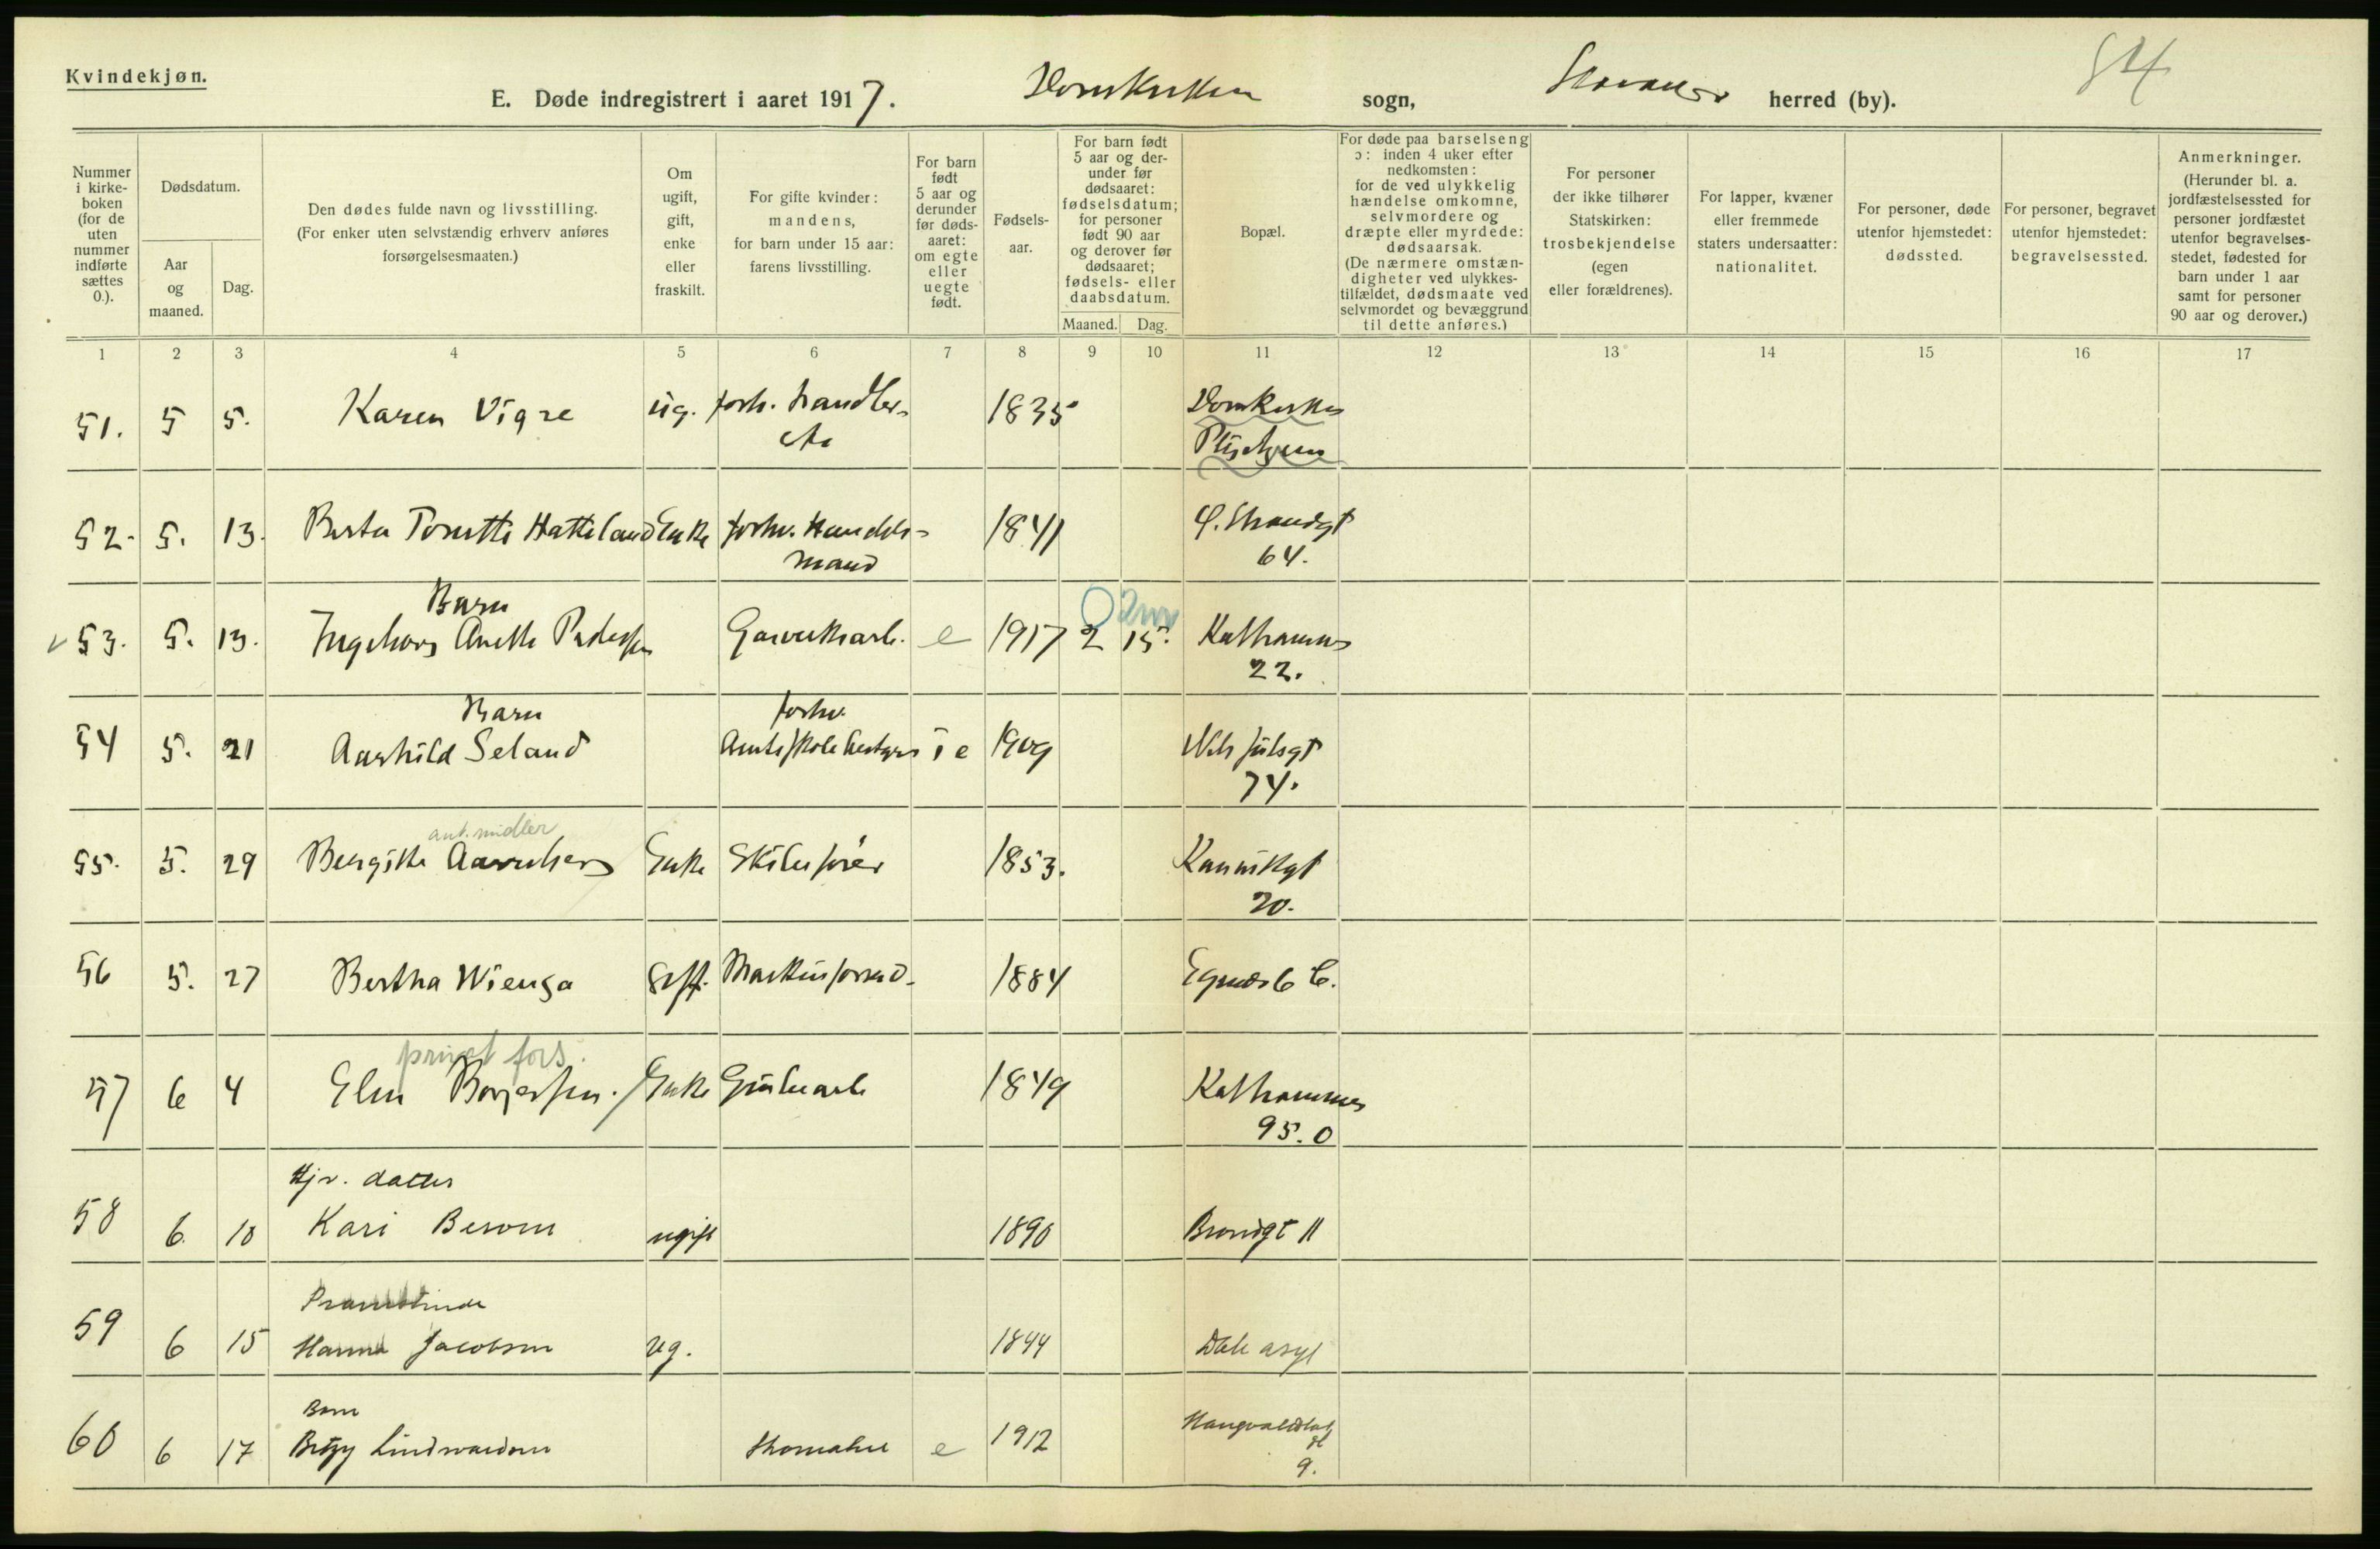 Kvindekjøn.
E. Døde indregistrert i aaret 1917. Domkirken sogn, Stavanger herred (by).
84
Nummer i kirkeboken (for de uten nummer indførte sættes 0.).
Dødsdatum.
Aar og maaned.
Dag.
Den dødes fulde navn og livsstilling.
(For enker uten selvstændig erhverv anføres forsørgelsesmaaten.)
Om ugift, gift, enke eller fraskilt.
For gifte kvinder: mandens, for barn under 15 aar: farens livsstilling.
For barn født 5 aar og derunder før dødsaaret: om egte eller uegte født.
Fødselsaar.
For barn født 5 aar og derunder før dødsaaret: fødselsdatum; for personer født 90 aar og derover før dødsaaret; fødsels- eller daabsdatum.
Maaned. Dag.
Bopæl.
For døde paa barselseng ɔ: inden 4 uker efter nedkomsten: for de ved ulykkelig hændelse omkomne, selvmordere og dræpte eller myrdede: dødsaarsak. (De nærmere omstændigheter ved ulykkestilfældet, dødsmaate ved selvmordet og bevæggrund til dette anføres.)
For personer der ikke tilhører Statskirken: trosbekjendelse (egen eller forældrenes).
For lapper, kvæner eller fremmede staters undersaatter: nationalitet.
For personer, døde utenfor hjemstedet: dødssted.
For personer, begravet utenfor hjemstedet: begravelsessted.
Anmerkninger.
(Herunder bl. a. jordfæstelsessted for personer jordfæstet utenfor begravelsesstedet, fødested for barn under 1 aar samt for personer 90 aar og derover.)
1 2 3 4 5 6 7 8 9 10 11 12 13 14 15 16 17
51. 5 5. Karen Vigre ug. forh. handler- 1835 Domkirkes
Pleiehjem
52. 5. 13. Berta Tonette Hatteland Enke forhv. Handels- 1841 Ø. Strandgt
mand 64.
Barn
53. 5. 13. Ingeborg Anette Pedersen Garverarb. e 1917 2 15. Kalhammer
22.
Barn forhv.
54 5. 21 Aashild Seland Amtsskolebestyrer i e 1909 Nils Juelsgt
74.
ant. midler
55. 5. 29 Bergitte Aarrebers Enke 1853. Kannikgt
20.
56 5. 27 Bertha Wienga Gift. 1884 Egnæs 6 C.
privat fors.
57 6 4 Elen Borgersen. Enke 1849 Kalhammer
95. 0
Hjv. datter
58 6. 10 Kari Berom ugift 1890 11
59 6 15 Hanna Jacobsen ug. 1844 Dale asyl
Barn
60 6 17 Betzy Lindvardsen Skomaker e 1912
9.